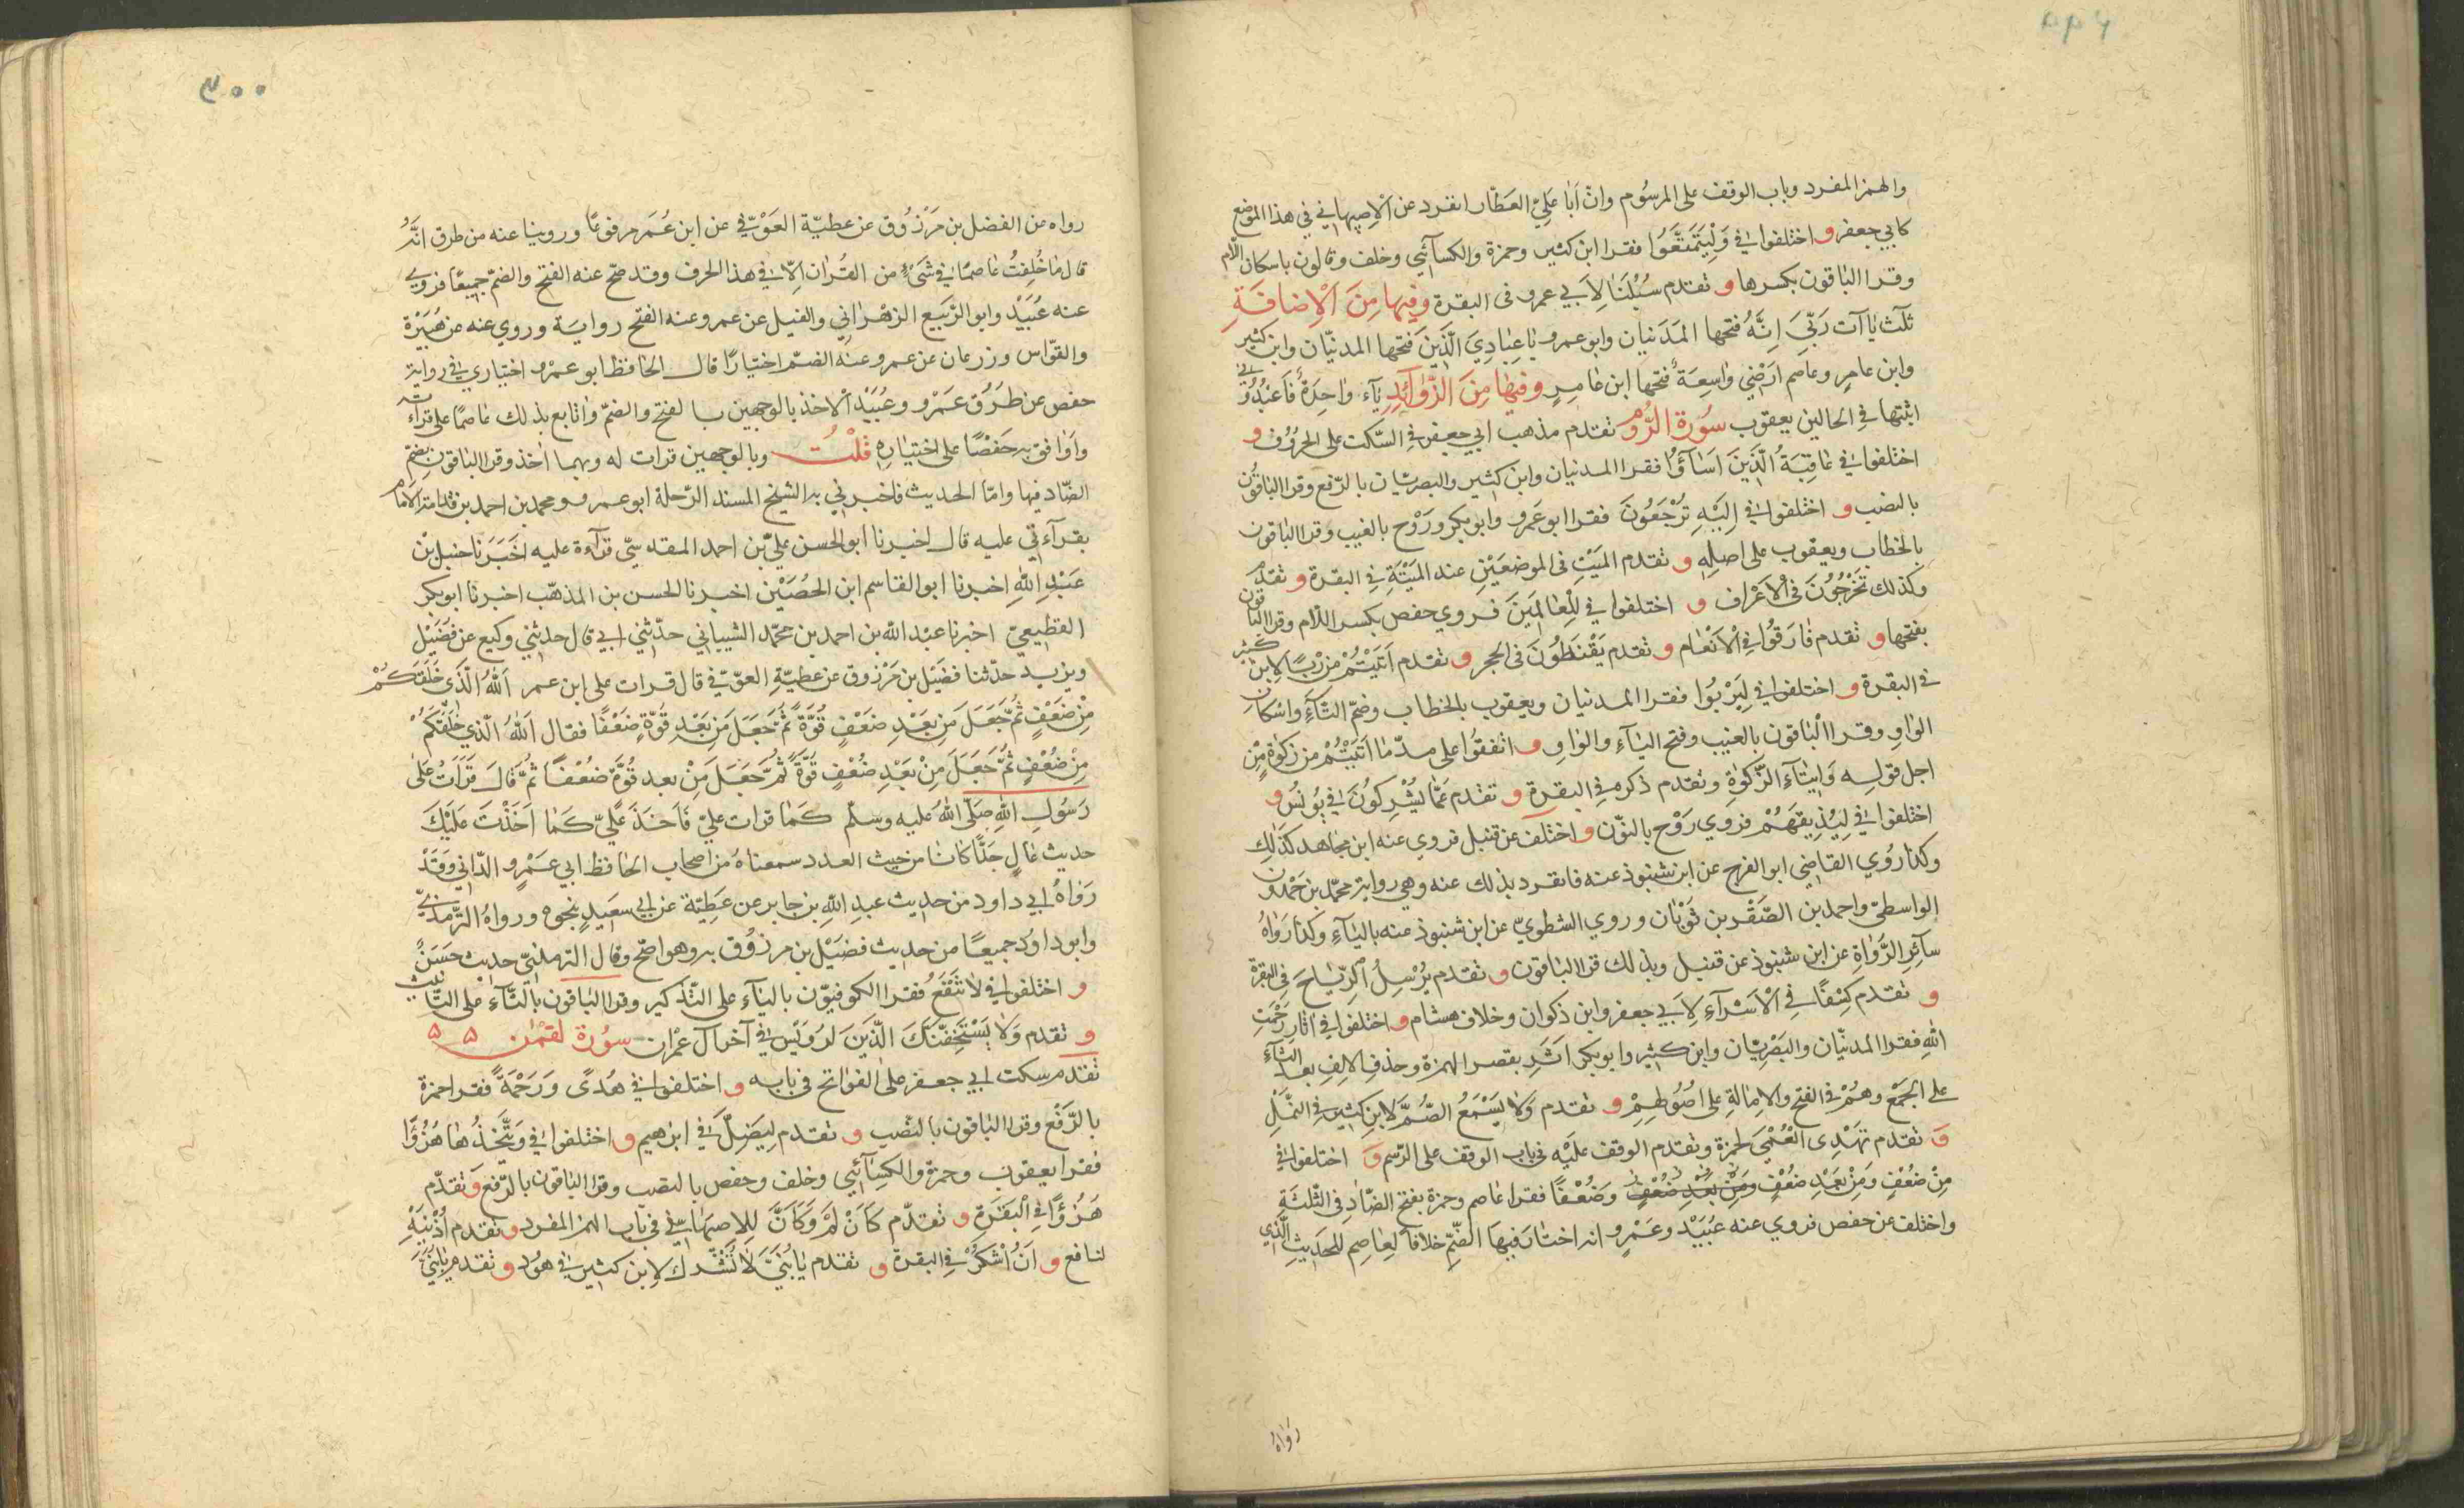 والهمز المفرد وباب الوقف على المرسُوم وانّ اَبَا عَلِيّ العَطّار انفرد عن الاِصبهاني في هذا الموضع
كابي جعفر و اختلفوا في وَلِيَتَمَتَّعُوا فقرا ابن كثير وحمزة والكسآئي وخلف وقالون باسكان اللام
وقرا الباقون بكسرها و تقدم سُبُلَنَا لِاَبي عمرو فى البقرة وفِيها مِنَ الْاِضافَةِ
ثلٰث يَاآت رَبّيَ اِنَّهُ فتحها المَدَنيان وابو عمرو يٰا عِبٰادِيَ الَّذَيِنَ فَتحها المدنيّان وابن كثير
وابن عامرٍ وعاصم اَرَضْيِ وٰاسِعَةٌ فتحها ابن عٰامِرٍ وفيهٰا مِنَ الزَّوٰآئِدِ يٰآء وٰاحِدَةٌ فَاعْبُدُوُنِ
اثبتها في الحالين يعقوب سُورة الرُّوم تقدم مذهب ابي جعفر في السّكت على الحُرُوُف و
اختلفوا في عٰاقِبَةُ الَّذَيِنَ اَسٰآؤُا فقرا المدنيان وابن كثير والبصريّان بالرّفع وقرا الباقوُن
بالنصب و اختلفوا في اِلَيْهِ تُرْجَعُونَ فقرا ابو عَمرو وابو بكر ورَوْح بالغيب وقرا الباقون
بالخطاب ويعقوب على اصلِهِ و تقدم المَيّتِ فى الموضعَيْنِ عند المَيْتَةِ في البقرة و تقدم
وكذلك تخَرْجُوُنَ فى الْاَعْرٰاف و اختلفوا في لِلْعٰالَمِيَنَ فروي حفص بكسر اللّام وقرا الباقون
بفتحها و تقدم فٰارَقُوا في الْاَنْعٰام و تقدم يَقْنَطُوُنَ فى الحجر و تقدم اٰتَيْتُمْ مِنْ رِبًا لابن كثير
في البقرة و اختلفوا في لِيَرْبُوَا فقرا المدنيان ويعقوب بالخطاب وضمّ التّآءِ واسكان
الوٰاوِ وقرا الْبٰاقون بالغيب وفتح اليٰآءِ والوٰاوِ و اتفقوُا على مدّ مٰا اٰتَيْتُمْ من زكوٰة مِنْ
اجل قولِه وَاِيتٰآءِ الزَّكوٰةِ وتقدم ذكره في البقرة و تقدم عَمّٰا يُشْرِكُوُنَ في يُونُس و
اختلفوا في لِيُذيِقَهُمْ فروي رَوْح بالنوّن و اختلف عن قنبل فروي عنه ابن مجٰاهد كذٰلك
وكذا رَوُي القاضي ابو الفرج عن ابن شنبوذ عنه فانفرد بذلك عنه وهي رواية محمّد بن حَمْدون
الواسطيّ واحمد بن الصَّقْر بن ثوَبٰان وروي الشطويّ عن ابن شنبوذ عنه باليٰآءِ وكذٰا رَوٰاهُ
سآئِرِ الرُّوٰاةِ عن ابن شنبوذ عن قنبل وبذلك قرا الباقون و تقدم يُرْسِلُ الرِّيٰاحَ في البقرة
و تقدم كِسْفًا في الْاَسْرٰآءِ لِاَبي جعفر وابن ذكوان وخلاف هشام و اختلفوا في اٰثٰارِ رَحْمَتِ
اللهِ فقرا المدنيّان والبَصْرِيّان وابن كثير وابو بكر اَثَرِ بقصر الهمزة وحذف الالِفِ بعد الثّآءِ
على الجَمْعِ وهُمْ في الفتح والِامٰالةِ على اُصُوُلِهِمْ و تقدم وَلٰا يَسْمَعُ الصُّمُّ لِابن كثير في النَّمْلِ
وَ تقدم تَهْدِى الْعُمْيَ لحمزة وتقدم الوقف عَلَيْه في باب الوقف على الرّسم وَ اختلفوا في
مِنْ ضُعْفٍ وَمِنْ بَعْدِ ضُعْفٍ وَمِنْ بَعْدِ ضُعْفٍ وَضُعْفًا فقرا عٰاصم وحمزة بفتح الضّٰادِ في الثّلثَةِ
واختلف عن حفص فروي عنه عُبَيْد وعَمْرو انه اختٰار فيها الضّمّ خلافاً لِعٰاصِم للحَدِيثِ الَّذي
رَوٰاهُ
٣٠٠
رواه عن الفضل بن مَرْزوُق عن عطيّة العَوْفّي عن ابن عُمَر مرفوعًا وروينا عنه من طرق انَّهُ
قال مٰا خُلِفتُ عٰاصمًا في شَئٍ من القُرٰان اِلّا في هذا الحرف وقد صحّ عنه الفتح والضمّ جميعًا فروي
عنه عُبَيْد وابو الرَّبيع الزهْرَاني والفيل عن عمرو عنه الفتح رواية وروي عنه عن هُبَيْرَة
والقوّاس وزرعان عن عمرو عنه الضمّ اختيارًا قال الحافظ ابو عمرو اختياري في رواية
حفص عن طرُق عَمْرو وعُبَيْد الْاخذ بالوجهين بالفتح والضمّ وٰاتٰابع بذلك عٰاصمًا على قرآءته
واُوٰافق به حَفْصًا على اختيٰارِهِ قُلْتُ وبالوجهين قرات له وبهما اٰخذ وقرا البٰاقون بضمّ
الضّاد فيها وامّا الحديث فاخبرني به الشيخ المسند الرّحلة ابو عمرو محمد بن احمد بن قدامة الامام
بقرآءتي عليه قال اخبرنا ابو الحسن علّي بن احمد المقدسّي قرآءة عليه اَخَبَرَنا حنبل بْن
عَبْدِ اللهِ اخبرنا ابو القاسم ابن الحُصَيْن اخبرنا الحسن بن المذهّب اخبرنا ابو بكر
القطِيعيّ اخبرنا عبْد الله بن احمد بن محمّد الشيباني حدّثني ابي قال حدثني وكيع عن فُضَيْل
ويزيد حدّثنا فضَيْل بن مَرْزوق عن عطيّةِ العوّفّي قال قرات على ابن عمر اَللهُ الَّذَي خَلَقَكُمْ
مِنْ ضَعْفٍ ثُمَّ جَعَلَ مِن بَعْدِ ضَعْفٍ قُوَّةً ثُمَّ جَعَلَ مَنِ بَعْدِ قُوَّةٍ ضَعْفًا فقال اَللهُ الّذي خَلَقَكُمْ
مِنْ ضُعْفٍ ثُمَّ جَعَلَ مِنْ بَعْدِ ضُعْفٍ قُوَّةً ثُمَّ جَعَلَ مِنْ بعد قُوَّة ضُعْفًا ثُمَّ قٰالَ قَرَاْتُ عَلى
رَسُولِ اللهِ صَلّى اللهُ عَليه وسلّم كَمٰا قرات عليّ فَاَخَذَ عَلَيّ كَمٰا اَخَذْتَ عَلَيْكَ
حديث عٰالٍ جَدًّا كاَنٰا من حيث العدد سمعنٰاهُ من اصحاب الحٰافظ ابي عَمْرٍو الدّاني وَقَدْ
رَوٰاهُ ابي داود من حديث عبدِ اللهِ بن جٰابر عن عَطِيّة عن ابي سعَيِدٍ بنحوه ورواهُ التّرمذيّ
وابو داوُد جميعًا من حديث فضَيْل بن مرزوُق به وهو اصّح وقال الترمذيّ حديث حَسَنٌ
و اختلفوا في لٰا تَنْفَعُ فقرا الكوفيوّن باليٰآءِ على التّذكير وقرا البٰاقون بالتّآءِ على التّانيث
و تقدم وَلٰا يَسْتَخِفَّنَّكَ الَّذَيِنَ لرُوَيْس في آخر آل عمْران سوُرة لقمٰن ۵ ۵
تقدم سكت ابي جعفر على الفواتح في بابه و اختلفوا في هُدًى وَرَحْمَةً فقرا حمزة
بالرّفْع وقرا البٰاقون بالنصْب و تقدم لِيَضِلَّ في ابرٰهيم و اختلفوا في وَيَتَّخِذُهٰا هُزُوًا
فقرا يعقوب وحمزة والكِسٰآئي وخلف وحفص بالنصب وقرا البٰاقون بالرّفع و تقدّم
هُزُوًا في الْبَقَرةِ و تقدّم كَاَنْ لَمْ وَكَاَنَّ للِاصبهٰاني في باب الهمز المفرد و تقدم اُذْنَيْهِ
لنافع و اَنُ اشْكُرْ في البقرة و تقدم يٰا بُنَيَّ لٰا تُشْرِك لابن كثير في هوُد و تقدم يٰا بُنَيَّ